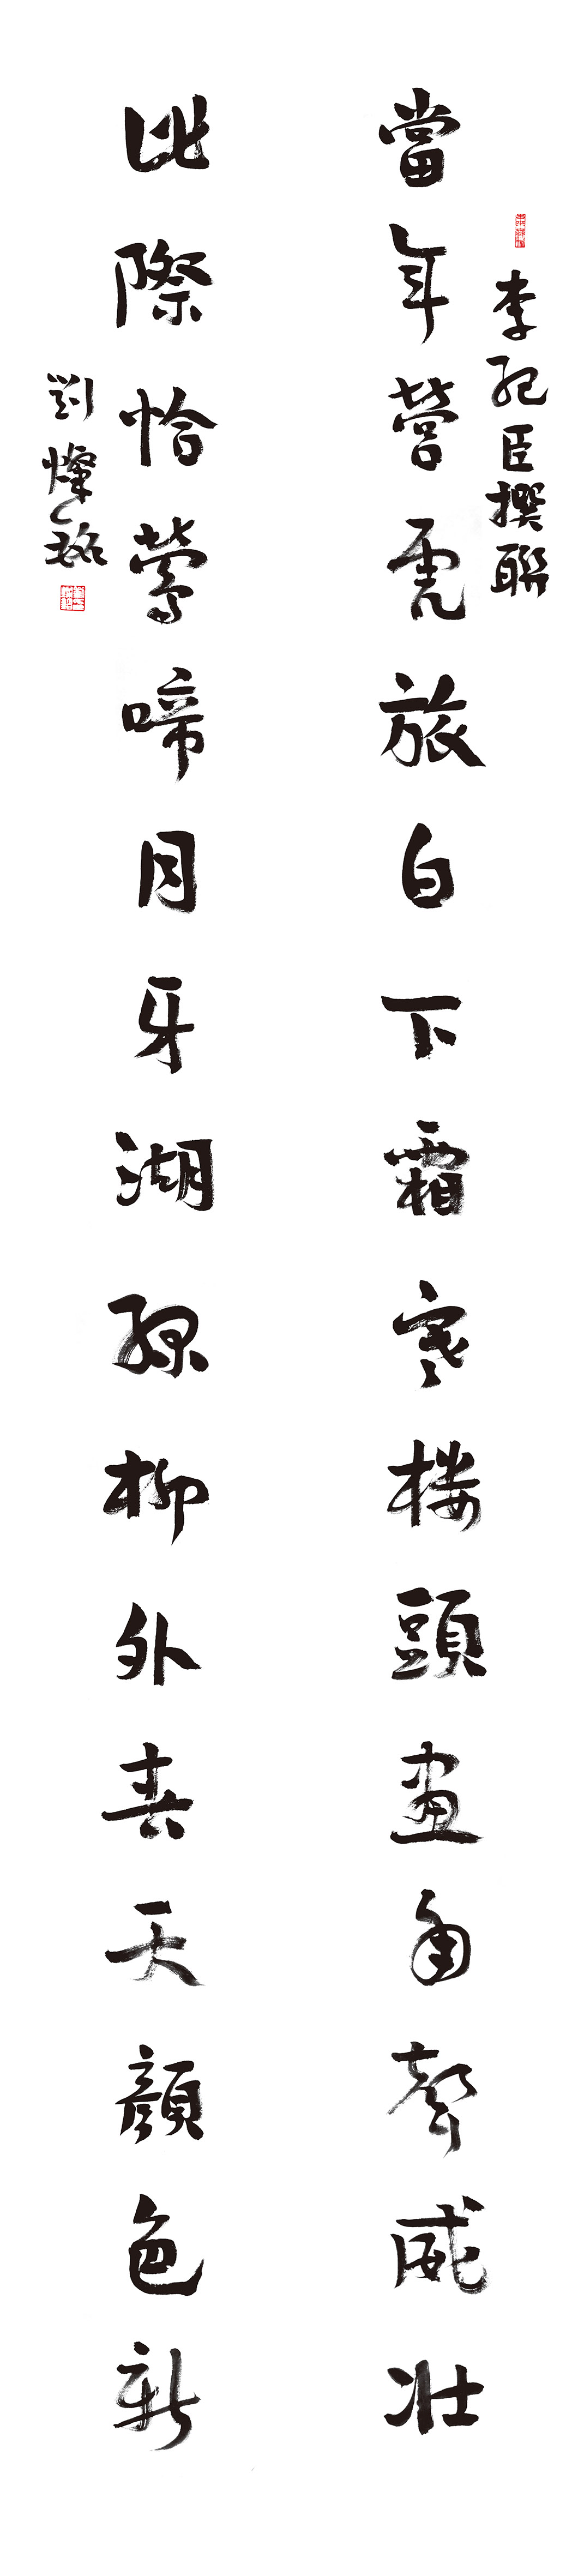 李紀臣撰聯
當年營虎旅白下霜寒樓頭畫角聲威壯
此際恰鶯啼月牙湖綠柳外春天顏色新
劉燦銘